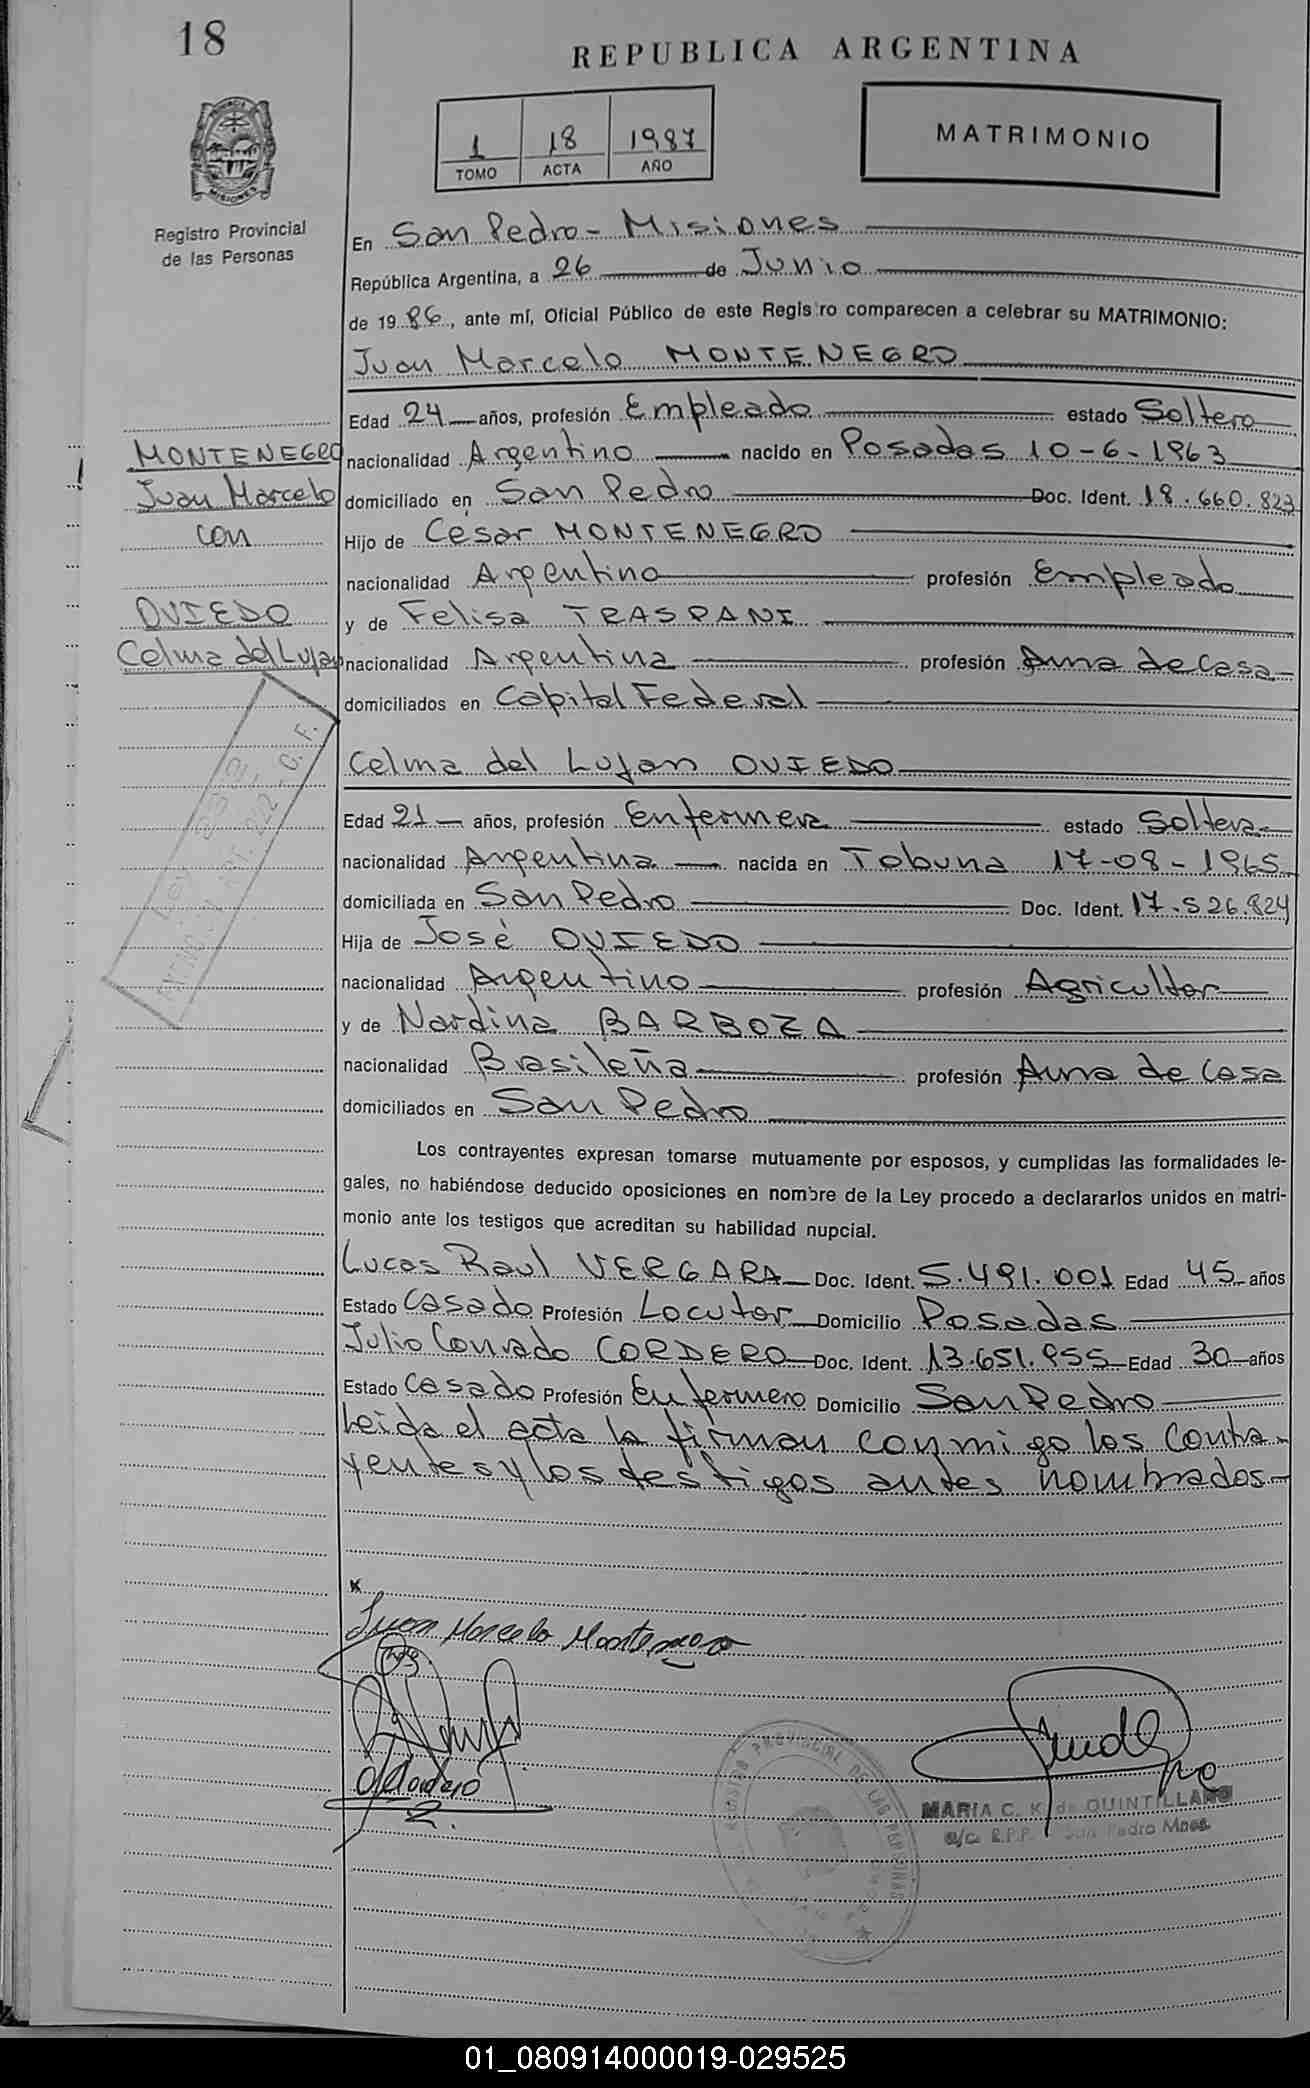 18
REPUBLICA ARGENTINA
1 18 1987
TOMO ACTA AÑO
MATRIMONIO
Registro Provincial
de las Personas
En San Pedro - Misiones
República Argentina, a 26 de Junio
de 1986, ante mí, Oficial Público de este Registro comparecen a celebrar su MATRIMONIO:
Juan Marcelo MONTENEGRO
Edad 24 años, profesión Empleado estado Soltero
MONTENEGRO
nacionalidad Argentino nacido en Posadas 10-6-1963
Juan Marcelo
domiciliado en San Pedro Doc. Ident. 18.660.823
con
Hijo de César MONTENEGRO
nacionalidad Argentino profesión Empleado
OVIEDO
y de Felisa TRASPANI
Celma del Lujan
nacionalidad Argentina profesión Ama de Casa
domiciliados en Capital Federal
Celma del Lujan OVIEDO
Edad 21 años, profesión Enfermera estado Soltera
nacionalidad Argentina nacida en Tobuna 17-08-1965
domiciliada en San Pedro Doc. Ident. 17.526.824
Hija de José OVIEDO
nacionalidad Argentino profesión Agricultor
y de Nardina BARBOZA
nacionalidad Brasileña profesión Ama de Casa
domiciliados en San Pedro
Los contrayentes expresan tomarse mutuamente por esposos, y cumplidas las formalidades le-
gales, no habiéndose deducido oposiciones en nombre de la Ley procedo a declararlos unidos en matri-
monio ante los testigos que acreditan su habilidad nupcial.
Lucas Raul VERGARA Doc. Ident. 5.491.001 Edad 45 años
Estado Casado Profesión Locutor Domicilio Posadas
Julio Conrado CORDERO Doc. Ident. 13.651.955 Edad 30 años
Estado Casado Profesión Enfermero Domicilio San Pedro
Leida el acta la firman conmigo los Contra-
yentes y los testigos antes nombrados
Juan Marcelo Montenegro
REGISTRO PROVINCIAL DE LAS PERSONAS
MARIA C. K. de QUINTILLANO
a/c R.P.P. San Pedro Mnes.
01_080914000019-029525